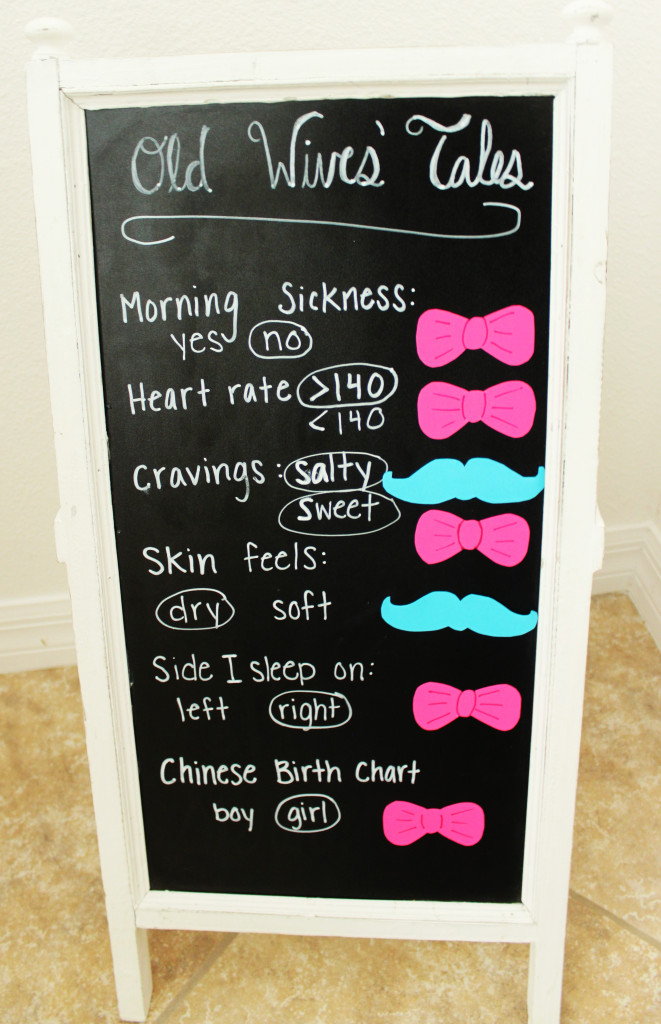 Old Wives' Tales
Morning Sickness:
yes no
Heart rate >140
<140
Cravings: salty
sweet
Skin feels:
dry soft
Side I sleep on:
left right
Chinese Birth Chart
boy girl